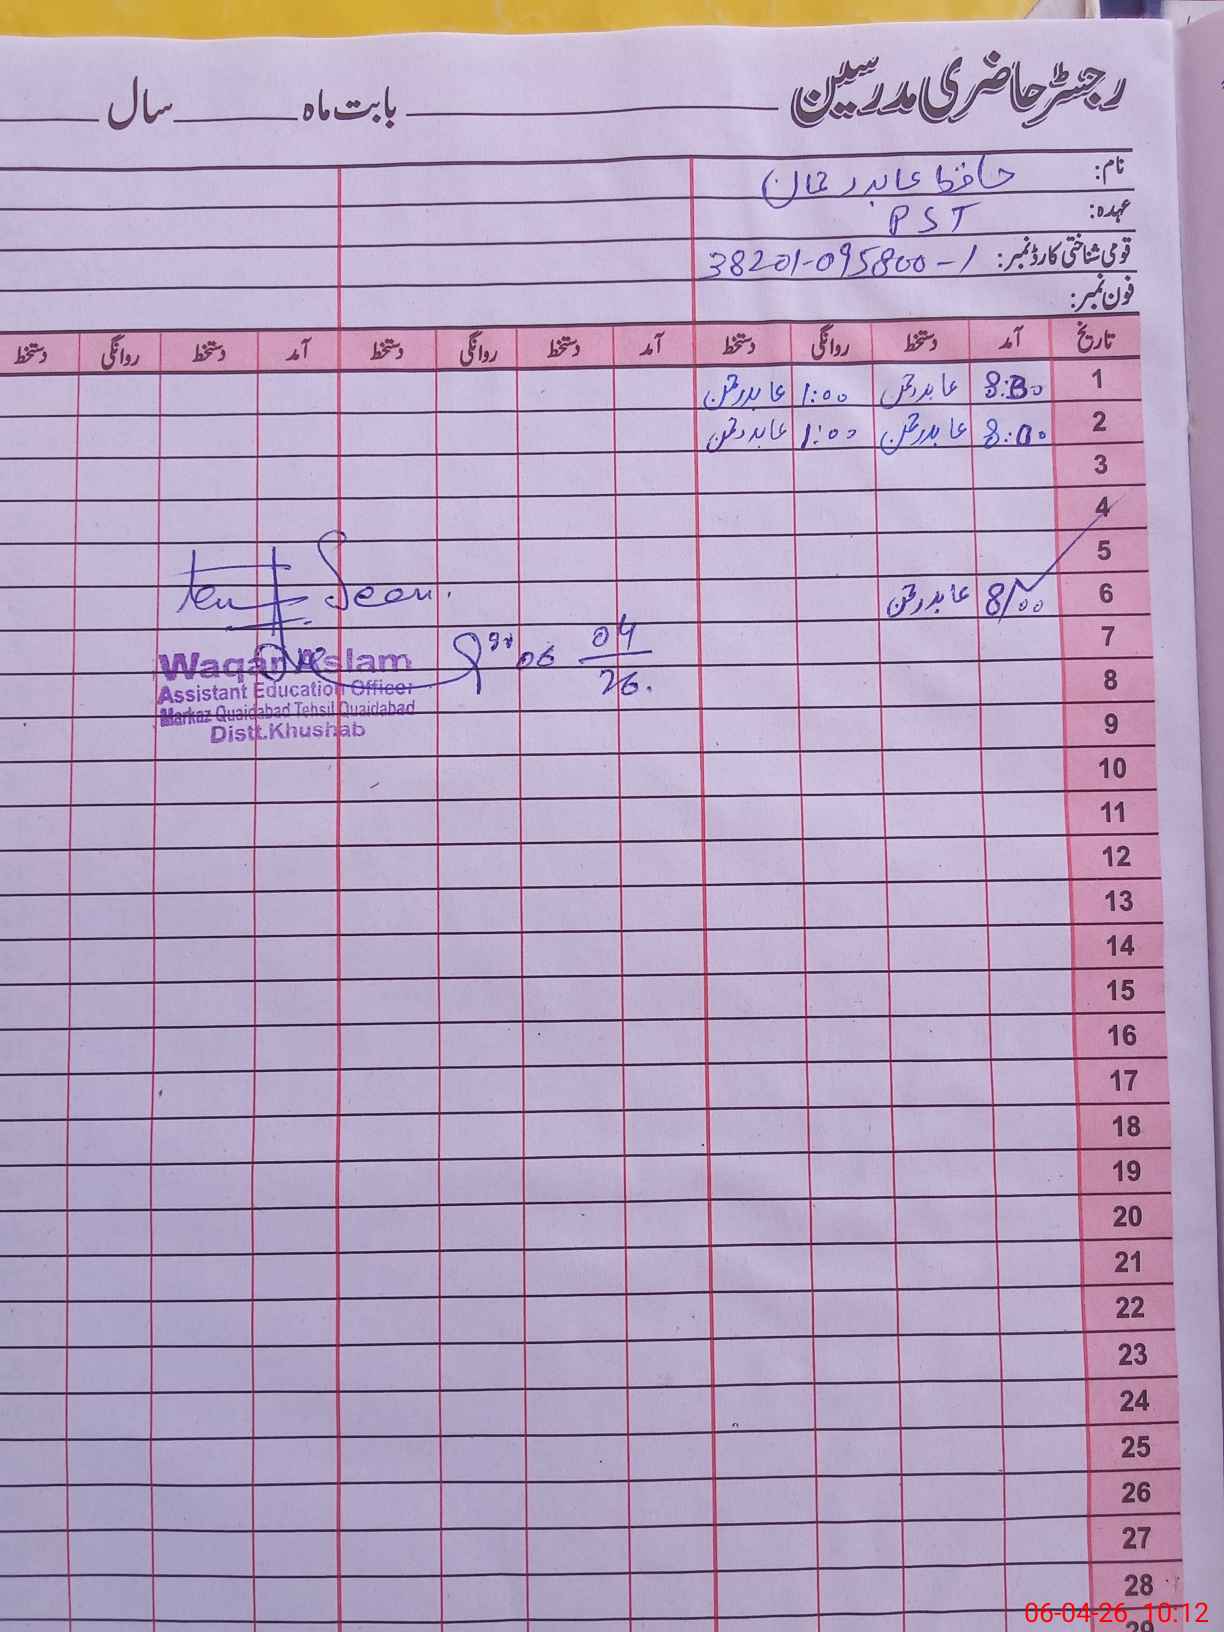 رجسٹر حاضری مدرسین ــــــ بابت ماہ ــــــ سال ــــــ
نام: حافظ عابد رحمان
عہدہ: PST
قومی شناختی کارڈ نمبر: 38201-095800-1
فون نمبر:
تاریخ آمد دستخط روانگی دستخط آمد دستخط روانگی دستخط آمد دستخط روانگی دستخط
1 8:30 عابد رحمن 1:00 عابد رحمن
2 8:00 عابد رحمن 1:00 عابد رحمن
3
4
5
6 8/00 عابد رحمن
7
8
Seen.
06 04
26.
Waqar Aslam
Assistant Education Officer
Markaz Quaidabad Tehsil Quaidabad
Distt.Khushab
9
10
11
12
13
14
15
16
17
18
19
20
21
22
23
24
25
26
27
28
29
06-04-26 10:12